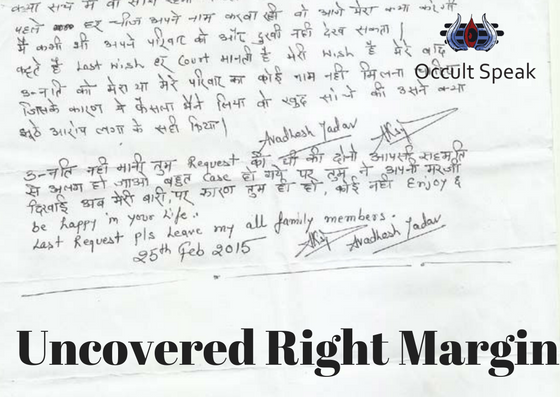 पहले हर चीज अपने नाम करवा ली वो आगे मेरा क्या करेगी
मैं कभी भी अपने परिवार को और दुखी नहीं देख सकता।
कहते है Last Wish हर Court मानती है मेरी Wish है मेरे बाद
उन्नति को मेरा या मेरे परिवार का कोई नाम नहीं मिलना
जिसके कारण ये फैसला मैंने लिया वो खुद सोचे की उसने क्या
झूठे आरोप लगा के सही किया।
Avadhesh Yadav
उन्नति नहीं मानी तुम Request की थी की दोनो आपसी सहमति
से अलग हो जाओ बहुत Case हो गये पर तुम ने अपनी मरजी
दिखाई अब मेरी बारी, पर कारण तुम ही हो, कोई नहीं Enjoy &
be happy in your Life..
Last Request pls Leave my all family members.
Avadhesh Yadav
25th Feb 2015
Occult Speak
Uncovered Right Margin